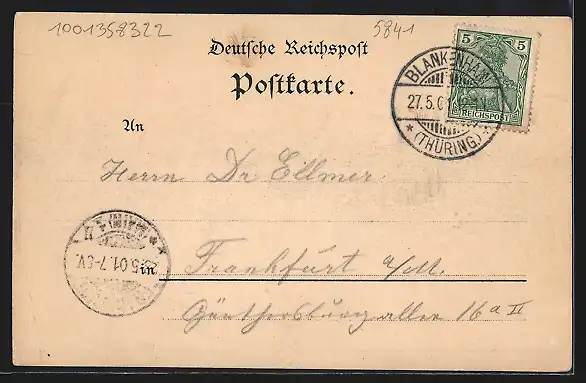 1001358322
5841
Deutsche Reichspost
Postkarte.
5 5
REICHSPOST
BLANKENHAIN
27.5.01
* (THÜRING) *
An
Herrn Dr Ellmer
5.01.7-8V.
in Frankfurt a/M.
Günthersburgallee 16a II